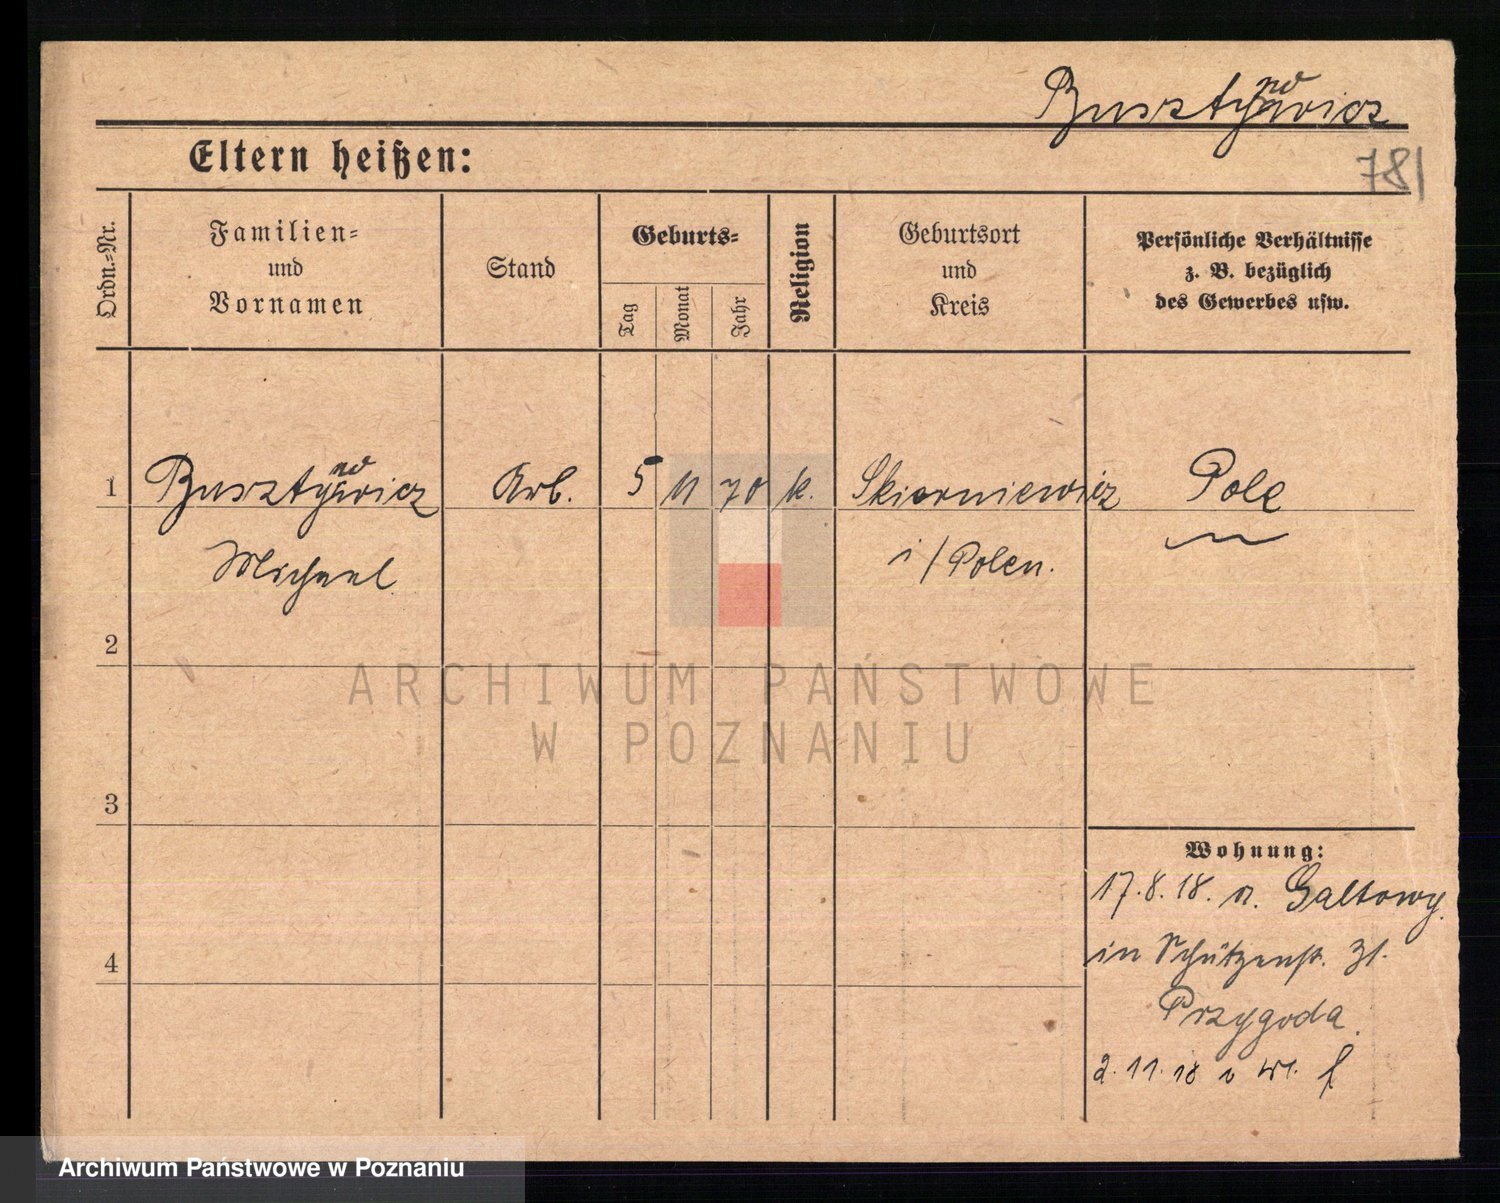 Busztynowicz
781
Eltern heißen:
Ordn.-Nr.
Familien-
und
Vornamen
Stand
Geburts-
Tag
Monat
Jahr
Religion
Geburtsort
und
Kreis
Persönliche Verhältnisse
z. B. bezüglich
des Gewerbes usw.
1 Busztynowicz Arb. 5 11 70 k. Skierniewicz Pole
Michael i/Polen.
2
ARCHIWUM PAŃSTWOWE
W POZNANIU
3
Wohnung:
17.8.18. a. Galtowy
in Schützenstr. 31.
4
Przygoda.
2.11.18 v
Archiwum Państwowe w Poznaniu